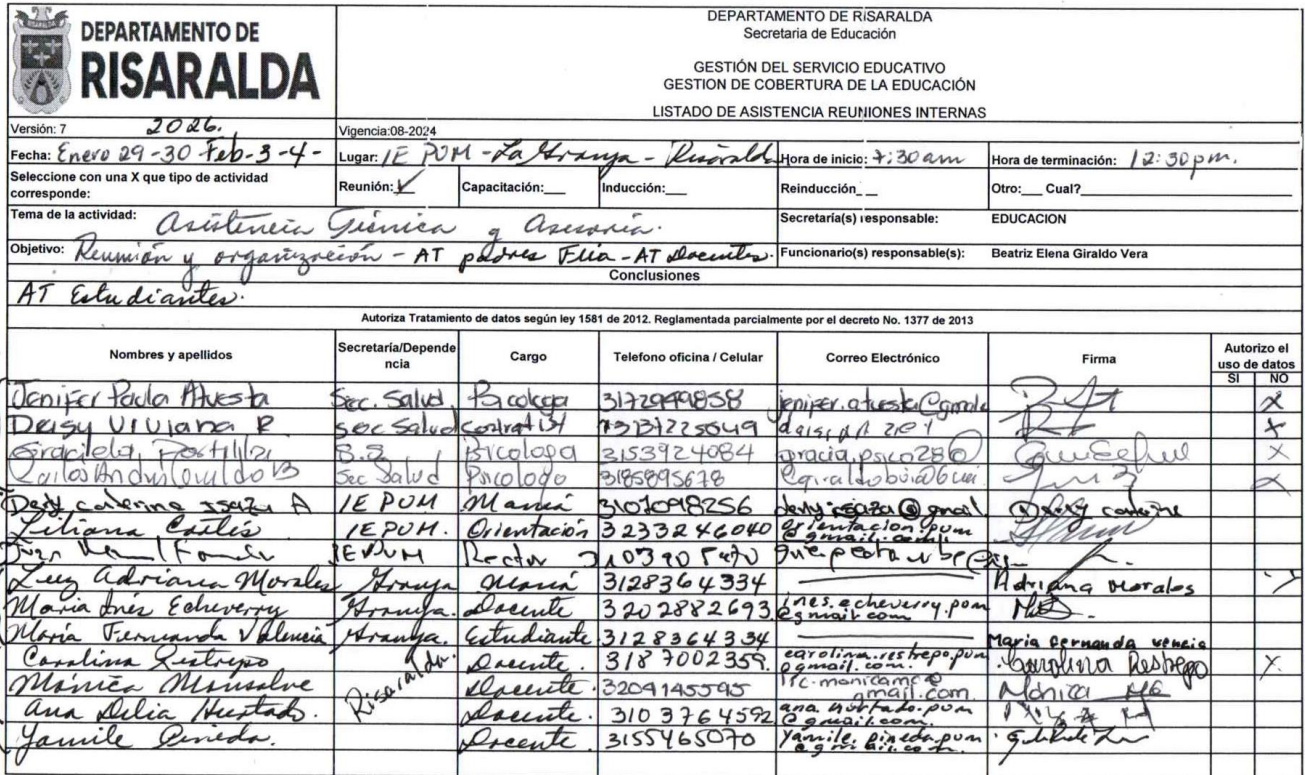 DEPARTAMENTO DE
RISARALDA
DEPARTAMENTO DE RISARALDA
Secretaria de Educación
GESTIÓN DEL SERVICIO EDUCATIVO
GESTION DE COBERTURA DE LA EDUCACIÓN
LISTADO DE ASISTENCIA REUNIONES INTERNAS
Versión: 7 2026. Vigencia:08-2024
Fecha: Enero 29-30 Feb-3-4- Lugar: IE PUM - La Granja - Risaralda Hora de inicio: 7:30am Hora de terminación: 12:30pm.
Seleccione con una X que tipo de actividad corresponde: Reunión: Capacitación:___ Inducción:___ Reinducción_ _ Otro:___ Cual?
Tema de la actividad: Asistencia Técnica y Asesoría. Secretaría(s) responsable: EDUCACION
Objetivo: Reunión y organización - AT padres Flia - AT Docentes. Funcionario(s) responsable(s): Beatriz Elena Giraldo Vera
Conclusiones
AT Estudiantes.
Autoriza Tratamiento de datos según ley 1581 de 2012. Reglamentada parcialmente por el decreto No. 1377 de 2013
Nombres y apellidos Secretaría/Dependencia Cargo Telefono oficina / Celular Correo Electrónico Firma Autorizo el uso de datos
SI NO
Jenifer Paola Atuesta Sec. Salud Psicologa 3172949858 X
Deisy Viviana R Sec Salud contratist 3137225049 X
Graciela Portilla S.S Psicologa 3153924084 X
Carlos Andrés Giraldo B Sec Salud Psicologo 3185895678 X
Deisy Isaza A IE PUM Mamá 3107098256
Liliana Cortés IE PUM. Orientación 3233246040 orientacion.pum@gmail.com
IE PUM Rector
Luz Adriana Morales Granja Mamá 3128364334 Adriana Morales
María Inés Echeverry Granja. Docente 3202882693 ines.echeverry.pum@gmail.com
María Fernanda Valencia Granja. Estudiante 3128364334 Maria Fernanda
Carolina Restrepo Risaralda. Docente 3187002359. carolina.restrepo.pum@gmail.com. Carolina Restrepo X
Mónica Monsalve Docente. 3204145595 Mónica
Ana Delia Hurtado. Docente. 3103764592 ana.hurtado.pum@gmail.com.
Yamile Pineda. Docente 3155465070 yamile.pineda.pum@gmail.com.